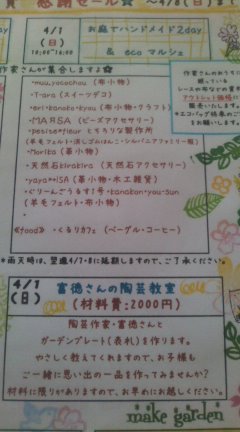 感謝セール☆ ~4/8(日)ま
4/1
(日)
10:00~16:00
お庭でハンドメイド2day
& ecoマルシェ
作家さんが集合します♪
・muu,yocochou(布小物)
・T-ara(スイーツデコ)
・eri・kanoko・kyou(布小物・クラフト)
・MARSA(ビーズアクセサリー)
(羊毛フェルト・消しゴムはんこ・シルバニアファミリー服)
・Moriba(革小物)
・天然石kirakira(天然石アクセサリー)
・yaya**ISA(革小物・木工雑貨)
・ぐりーんごうるす1号・kanakon・you-sun
(羊毛フェルト・布小物)
《food》・くるりカフェ(ベーグル・コーヒー)
作家さんのおうちに
眠っている
レースや布などの資材
アウトレット価格に
販売します。
*エコバッグ持参のご
をお願いします。
*雨天時は、翌週4/7・8に延期しますので、ご了承ください。
4/1
(日)
富徳さんの陶芸教室
(材料費:2000円)
陶芸作家・富徳さんと
ガーデンプレート(表札)を作ります。
やさしく教えてくれますので、お子様も
ご一緒に思い出の一品を作ってみませんか?
材料に限りがありますので、お早めにお越しください。
make garden